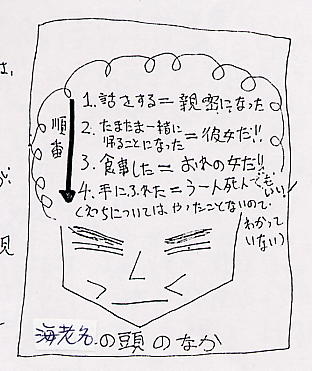 は、
順番
1. 話をする=親密になった
2. たまたま一緒に
帰ることになった=彼女だ!!
3. 食事した=おれの女だ!!
4. 手にふれた=うーん死んでもいい!
(えっちについてはやったことないので
わかって
いない)
が
見
海老名の頭のなか